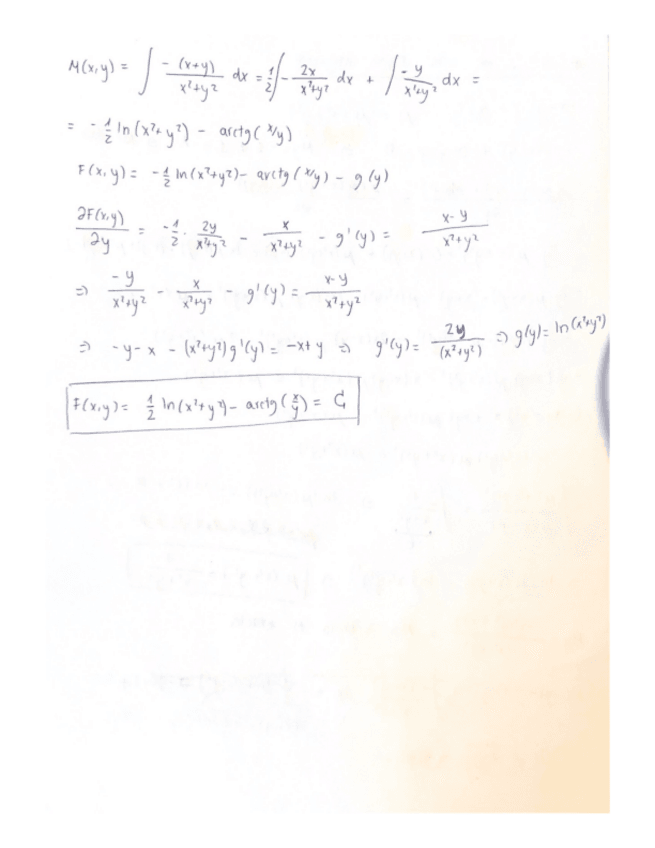 M(x,y) = ∫ - (x+y)/(x²+y²) dx = 1/2 ∫ - 2x/(x²+y²) dx + ∫ -y/(x²+y²) dx =
= - 1/2 ln(x²+y²) - arctg(x/y)
F(x,y) = - 1/2 ln(x²+y²) - arctg(x/y) - g(y)
∂F(x,y)/∂y = - 1/2 · 2y/(x²+y²) - x/(x²+y²) - g'(y) = x-y/(x²+y²)
⇒ -y/(x²+y²) - x/(x²+y²) - g'(y) = x-y/(x²+y²)
⇒ -y-x - (x²+y²)g'(y) = -x+y ⇒ g'(y) = 2y/(x²+y²) ⇒ g(y) = ln(x²+y²)
F(x,y) = 1/2 ln(x²+y²) - arctg(x/y) = C